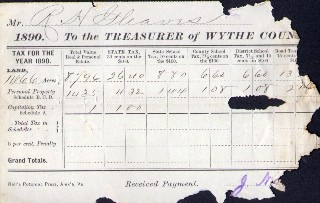 Mr. R H Gleaves
1890. To the TREASURER of WYTHE COUN
TAX FOR THE YEAR 1890. Total Value Real & Personal Estate. STATE TAX, 30 cents on the $100. State School Tax, 10 cents on the $100. County School Tax, 7½ cents on the $100. District School Tax, on the $100. Road Tax
LAND, Acres 26 40 8 80 6 60 6 60 13
Personal Property Schedule B. C. D. 4 32 1 44 1 08 1 08 2
Capitation Tax Schedule A. 1 1 00
Total Tax in Schedules
5 per cent. Penalty
Grand Totals.
Received Payment.